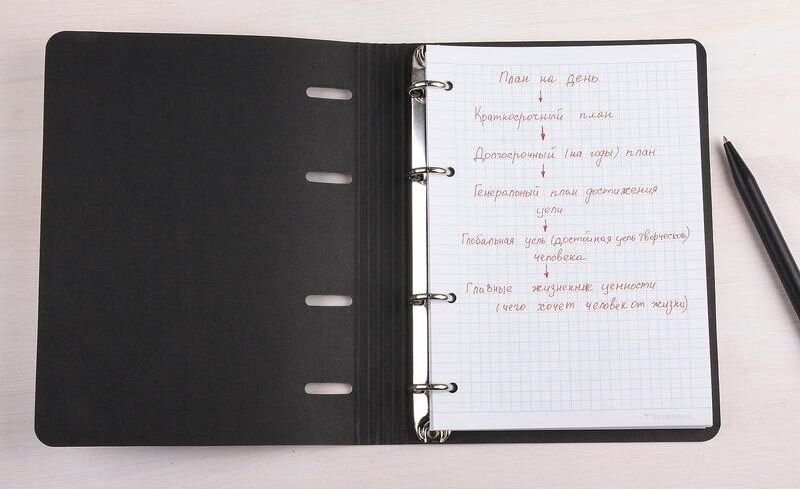 План на день
Краткосрочный план
Долгосрочный (на годы) план
Генеральный план достижения
цели
Глобальная цель (достойная цель творческого)
человека
Главные жизненные ценности
(чего хочет человек от жизни)